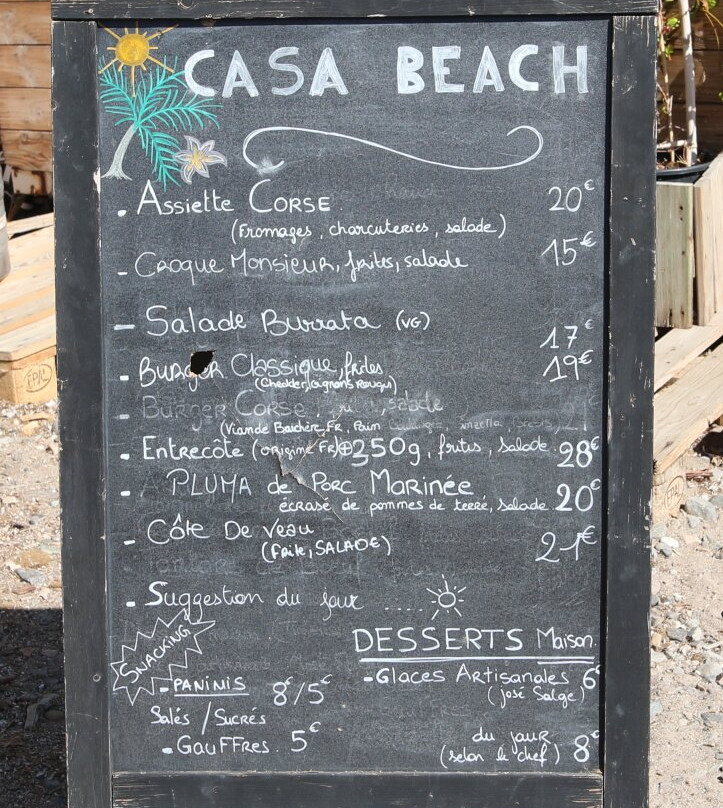 CASA BEACH
. Assiette CORSE 20€
(Fromages, charcuteries, salade)
- Croque Monsieur, frites, salade 15€
- Salade Burrata (VG) 17€
- Burger Classique, frites 19€
(Chedder, oignons Rouges)
Burger Corse salade 21
(Viande Bachée FR, Pain
. Entrecôte (origine FR) 350g, frites, salade. 28€
- PLUMA de Porc Marinée 20€
écrasé de pommes de terre, salade
- Côte De Veau 21€
(Frite, SALADE)
. Suggestion du jour ....
SNACKING
- PANINIS 8€/5€
Salés / Sucrés
- GauFFres. 5€
DESSERTS Maison.
- Glaces Artisanales 6€
(josé Salge)
du jour
(selon le chef) 8€